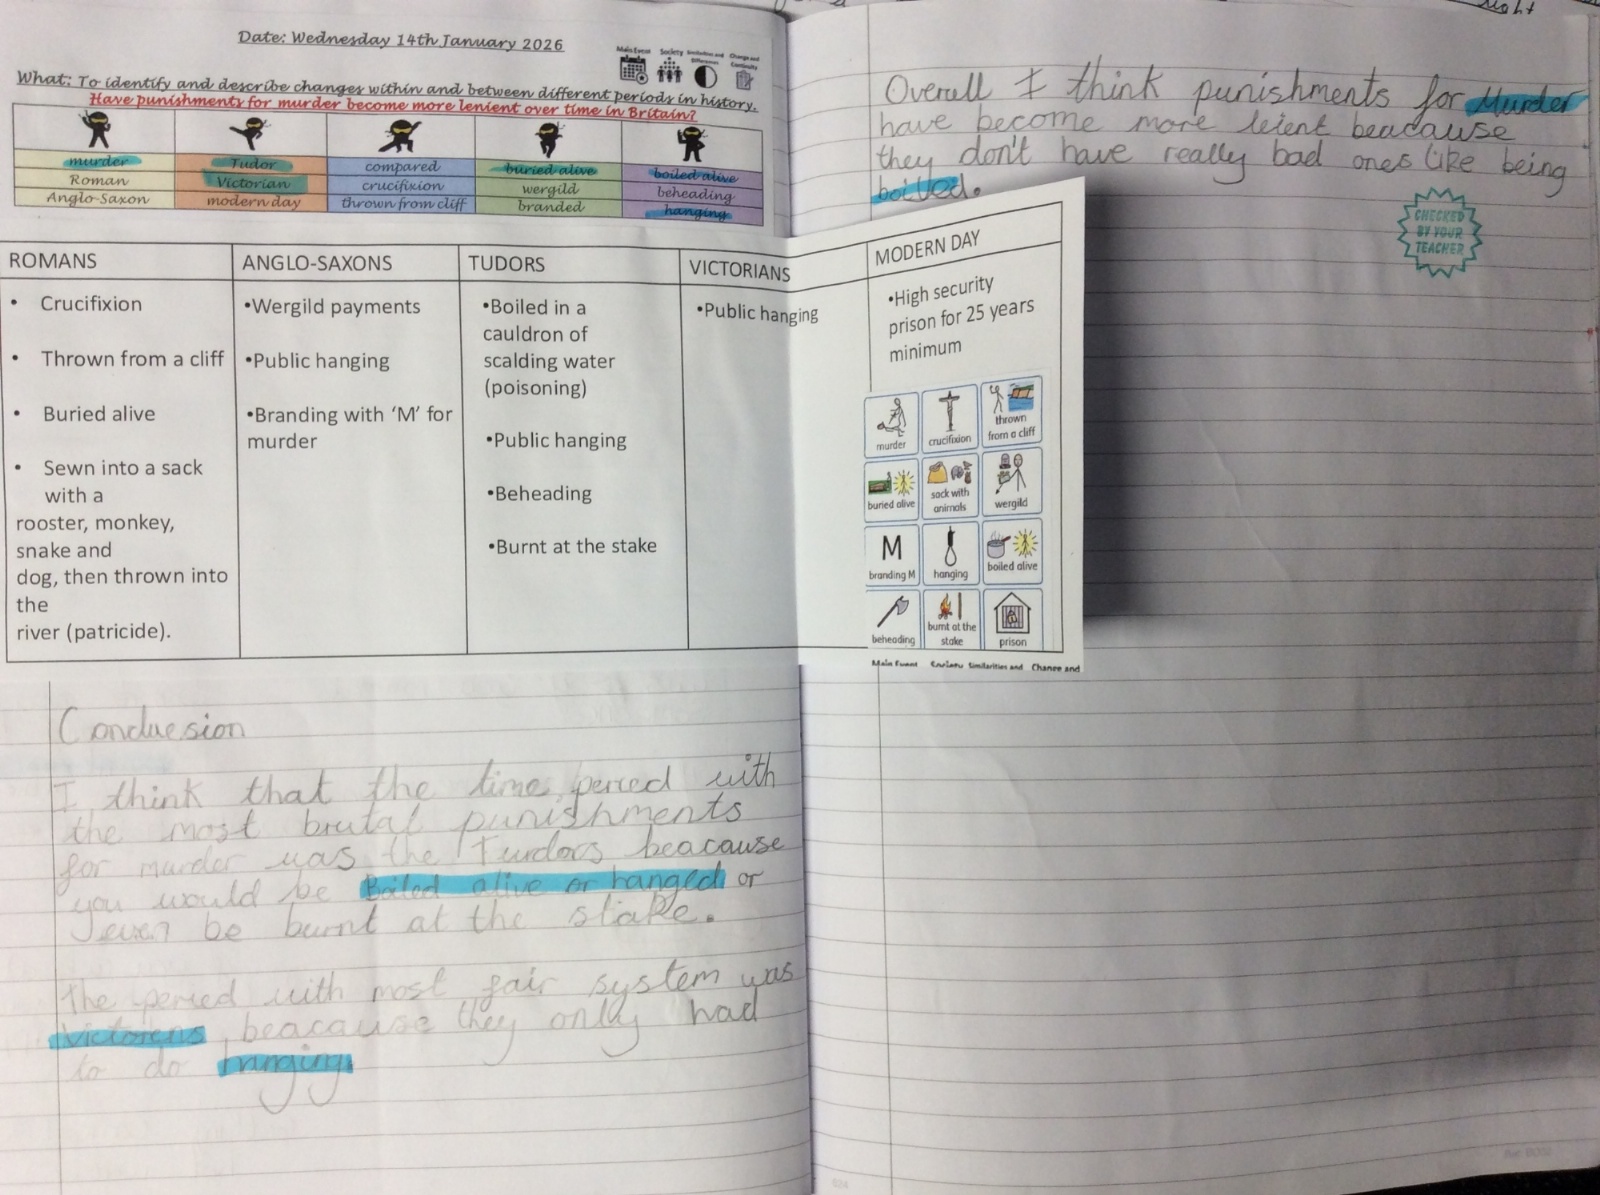 Date: Wednesday 14th January 2026
Main Event
Society
Similarities and Differences
Change and Continuity
What: To identify and describe changes within and between different periods in history.
Have punishments for murder become more lenient over time in Britain?
murder
Tudor
compared
buried alive
boiled alive
Roman
Victorian
crucifixion
wergild
beheading
Anglo-Saxon
modern day
thrown from cliff
branded
hanging
ROMANS
• Crucifixion
• Thrown from a cliff
• Buried alive
• Sewn into a sack
with a
rooster, monkey,
snake and
dog, then thrown into
the
river (patricide).
ANGLO-SAXONS
•Wergild payments
•Public hanging
•Branding with ‘M’ for
murder
TUDORS
•Boiled in a
cauldron of
scalding water
(poisoning)
•Public hanging
•Beheading
•Burnt at the stake
VICTORIANS
•Public hanging
MODERN DAY
•High security
prison for 25 years
minimum
murder
crucifixion
thrown
from a cliff
buried alive
sack with
animals
wergild
M
branding M
hanging
boiled alive
beheading
burnt at the
stake
prison
Main Event
Society
Similarities and
Change and
Concluesion
I think that the time period with
the most brutal punishments
for murder was the Turdors beacause
you would be Boiled alive or hanged or
even be burnt at the stake.
The period with most fair system was
Victorens beacause they only had
to do hanging
Overall I think punishments for Murder
have become more leient beacause
they don't have really bad ones like being
boiled.
CHECKED
BY YOUR
TEACHER